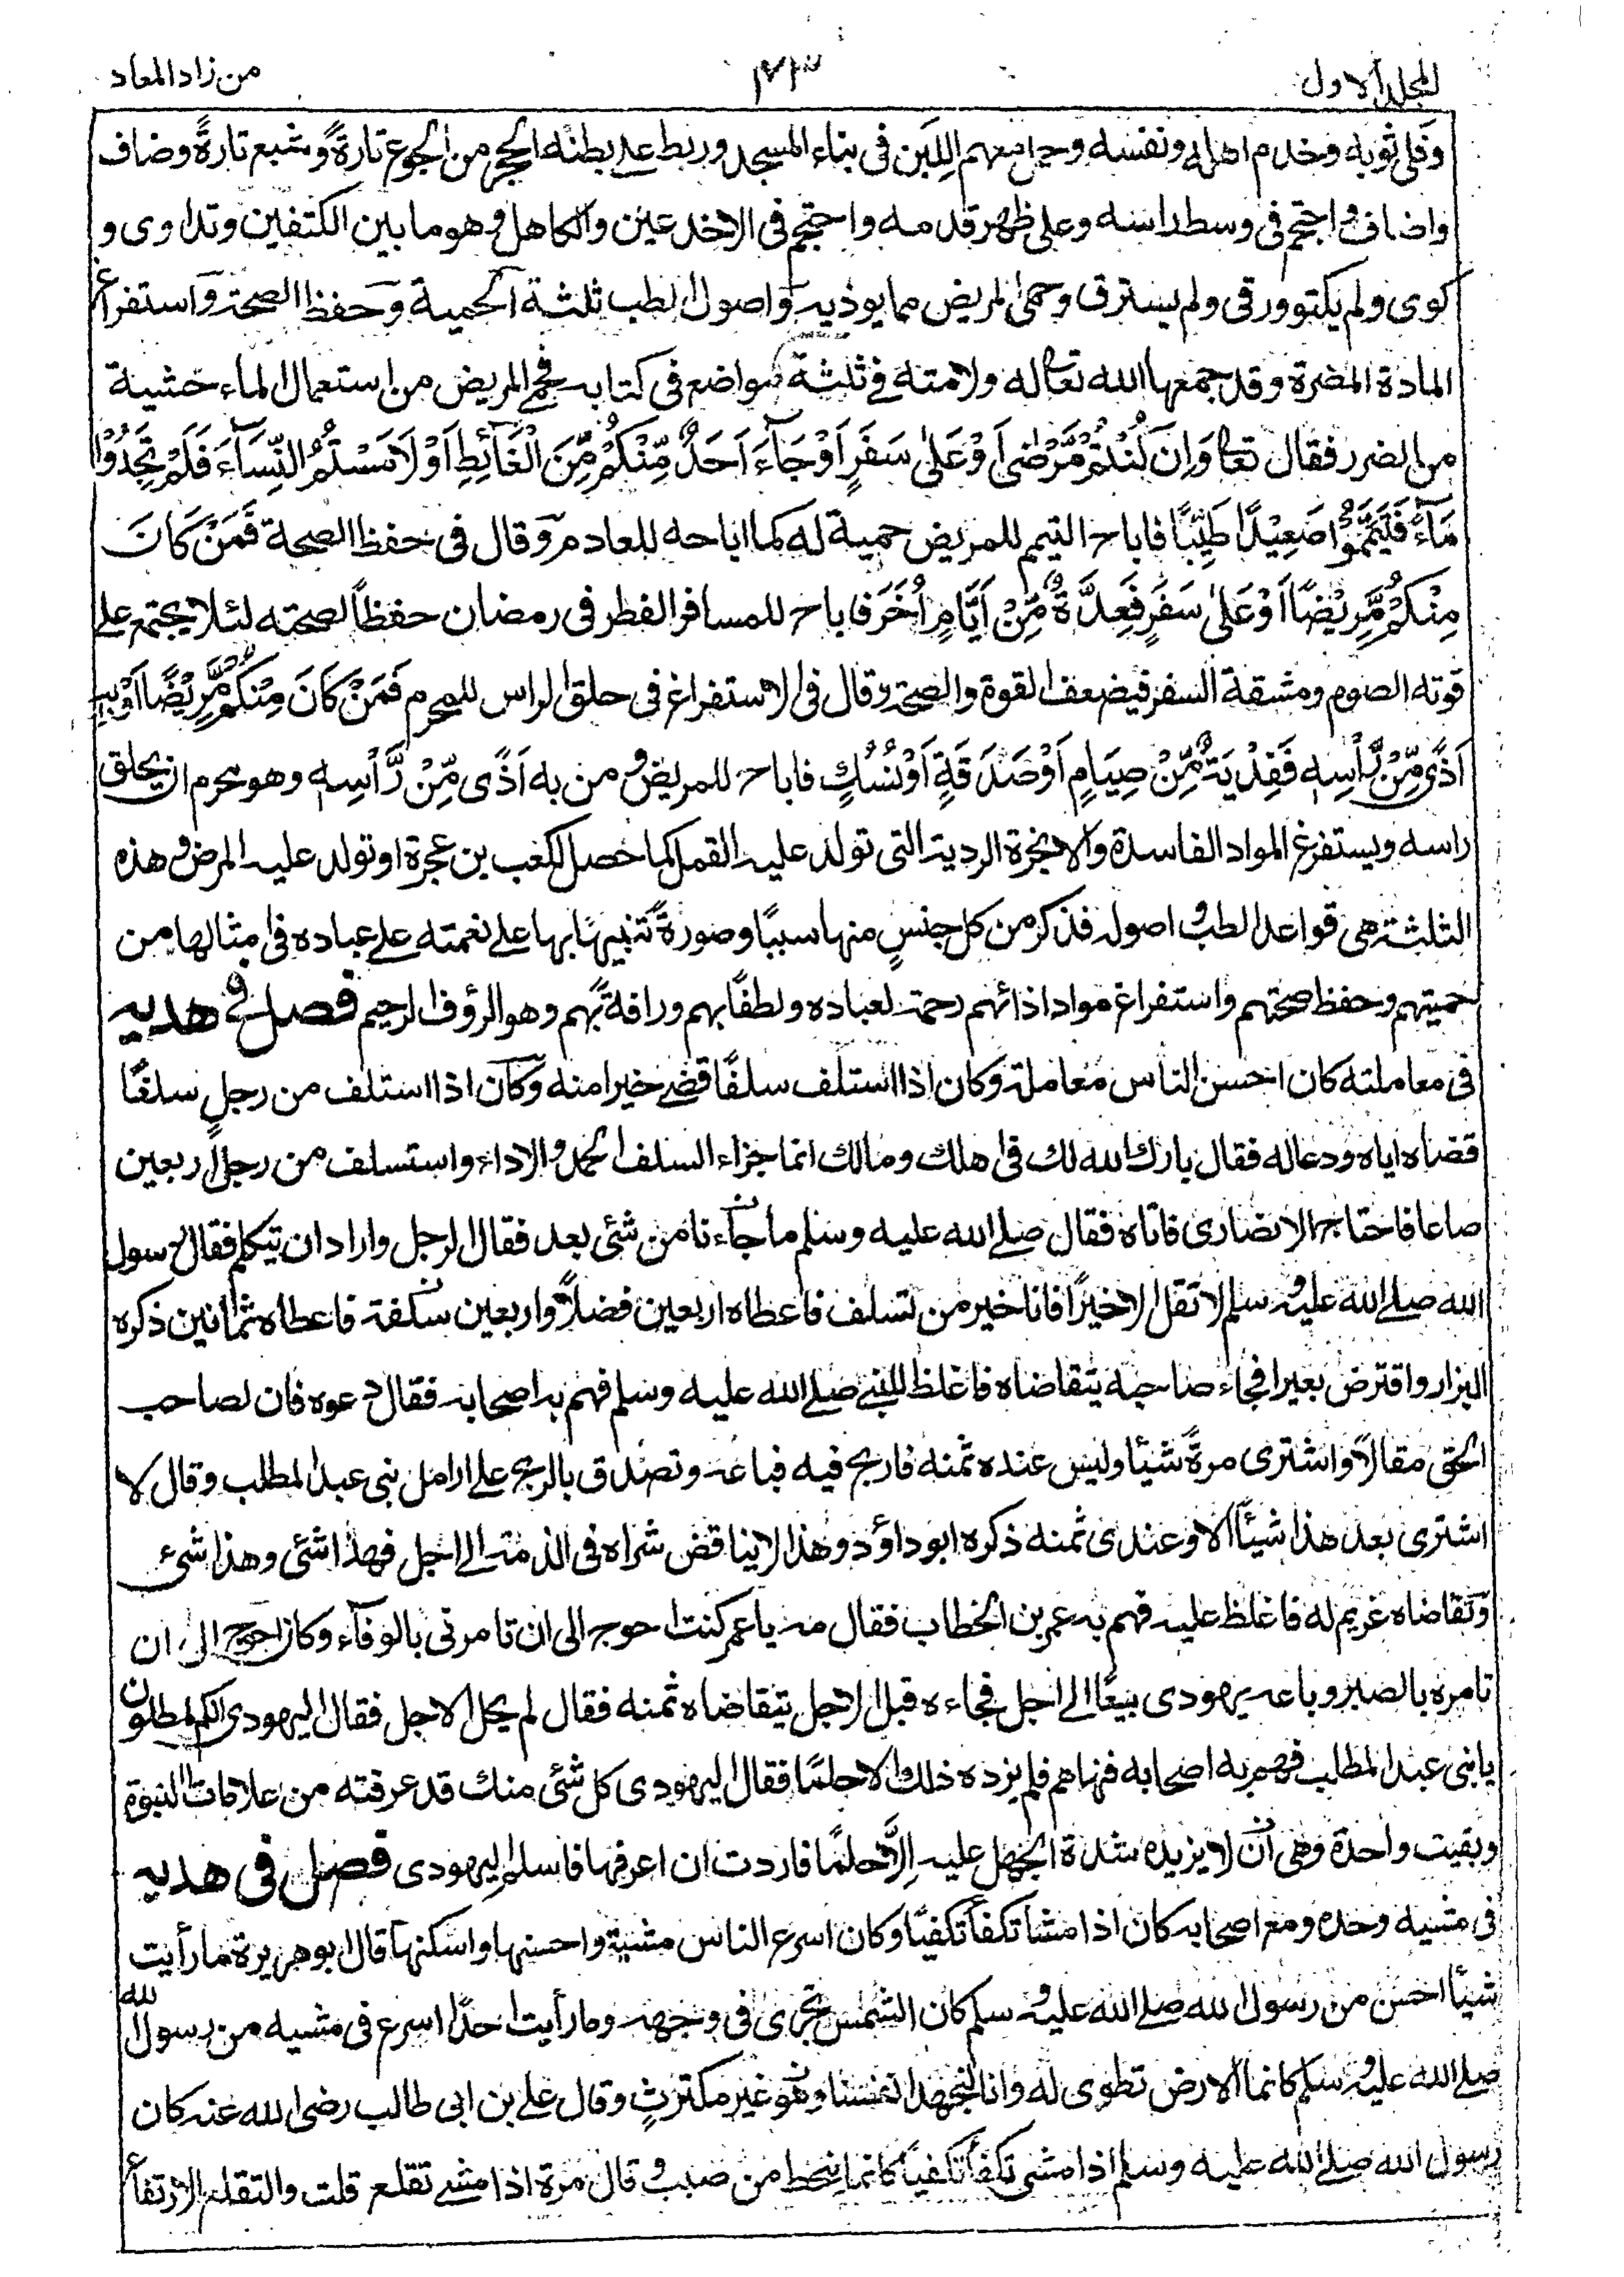 المجلد الاول
٤٣
من زاد المعاد
وفلى ثوبه وخدم اهله ونفسه وحمل معهم اللبن فى بناء المسجد وربط على بطنه الحجر من الجوع تارةً وشبع تارةً وضاف
واضاف واحتجم فى وسط راسه وعلى ظهر قدمه واحتجم فى الاخدعين والكاهل وهو ما بين الكتفين وتداوى و
كوى ولم يكتو ورقى ولم يسترق وحمى المريض مما يوذيه واصول الطب ثلثة الحمية وحفظ الصحة واستفراغ
المادة المضرة وقد جمعها الله تعالى له ولامته فى ثلثة مواضع فى كتابه فحمى المريض من استعمال الماء خشية
من الضرر فقال تعالى وَاِنْ كُنْتُمْ مَّرْضٰى اَوْ عَلٰى سَفَرٍ اَوْ جَآءَ اَحَدٌ مِّنْكُمْ مِّنَ الْغَآئِطِ اَوْ لَامَسْتُمُ النِّسَآءَ فَلَمْ تَجِدُوْا
مَآءً فَتَيَمَّمُوْا صَعِيْدًا طَيِّبًا فاباح التيمم للمريض حمية له كما اباحه للعادم وقال فى حفظ الصحة فَمَنْ كَانَ
مِنْكُمْ مَّرِيْضًا اَوْ عَلٰى سَفَرٍ فَعِدَّةٌ مِّنْ اَيَّامٍ اُخَرَ فاباح للمسافر الفطر فى رمضان حفظاً لصحته لئلا يجتمع على
قوته الصوم ومشقة السفر فيضعف القوة والصحة وقال فى الاستفراغ فى حلق الراس للمحرم فَمَنْ كَانَ مِنْكُمْ مَّرِيْضًا اَوْ بِهٖ
اَذًى مِّنْ رَّاْسِهٖ فَفِدْيَةٌ مِّنْ صِيَامٍ اَوْ صَدَقَةٍ اَوْ نُسُكٍ فاباح للمريض ومن به اَذًى مِّنْ رَّاْسِهٖ وهو محرم ان يحلق
راسه ويستفرغ المواد الفاسدة والابخرة الردية التى تولد عليه القمل كما حصل لكعب بن عجرة او تولد عليه المرض وهذه
الثلثة هى قواعد الطب واصوله فذكر من كل جنسٍ منها سببًا وصورةً تنبيهًا بها على نعمته على عباده فى امثالها من
حميتهم وحفظ صحتهم واستفراغ مواد اذائهم رحمة لعباده ولطفًا بهم ورافة بهم وهو الرؤف الرحيم فصل فى هديه
فى معاملته كان احسن الناس معاملة وكان اذا استلف سلفًا قضى خيرا منه وكان اذا استلف من رجلٍ سلفًا
قضاه اياه ودعا له فقال بارك الله لك فى اهلك ومالك انما جزاء السلف الحمد والاداء واستسلف من رجل اربعين
صاعا فاحتاج الانصارى فاتاه فقال صلى الله عليه وسلم ما جاءنا من شئى بعد فقال الرجل واراد ان يتكلم فقال رسول
الله صلى الله عليه وسلم لا تقل الا خيرًا فانا خير من تسلف فاعطاه اربعين فضلًا واربعين سلفة فاعطاه ثمانين ذكره
البزار واقترض بعيرا فجاء صاحبه يتقاضاه فاغلظ للنبى صلى الله عليه وسلم فهم به اصحابه فقال دعوه فان لصاحب
الحق مقالًا واشترى مرةً شيئا وليس عنده ثمنه فاربح فيه فباعه وتصدق بالربح على ارامل بنى عبد المطلب وقال لا
اشترى بعد هذا شيئًا الا وعندى ثمنه ذكره ابو داؤد وهذا لا يناقض شراه فى الذمة الى اجل فهذا شئى وهذا شىء
وتقاضاه غريم له فاغلظ عليه فهم به عمر بن الخطاب فقال مه يا عمر كنت احوج الى ان تامرنى بالوفاء وكان احوج الى ان
تامره بالصبر وباعه يهودى بيعًا الى اجل فجاءه قبل الاجل يتقاضاه ثمنه فقال لم يحل الاجل فقال اليهودى انكم لمطلون
يا بنى عبد المطلب فهم به اصحابه فنهاهم فلم يزده ذلك الا حلمًا فقال اليهودى كل شئى منك قد عرفته من علامات النبوة
وبقيت واحدة وهى ان لا يزيده شدة الجهل عليه اِلَّا حلمًا فاردت ان اعرفها فاسلم اليهودى فصل فى هديه
فى مشيه وحده ومع اصحابه كان اذا مشا تكفأ تكفيًا وكان اسرع الناس مشيةً واحسنها واسكنها قال ابو هريرة ما رأيت
شيئًا احسن من رسول الله صلى الله عليه وسلم كان الشمس تجرى فى وجهه وما رأيت احدًا اسرع فى مشيه من رسول الله
صلى الله عليه وسلم كانما الارض تطوى له وانا لنجهد انفسنا وهو غير مكترثٍ وقال على بن ابى طالب رضى الله عنه كان
رسول الله صلى الله عليه وسلم اذا مشى تكفأ تكفياً كانما ينحط من صبب وقال مرة اذا مشى تقلع قلت والتقلع الارتفاع